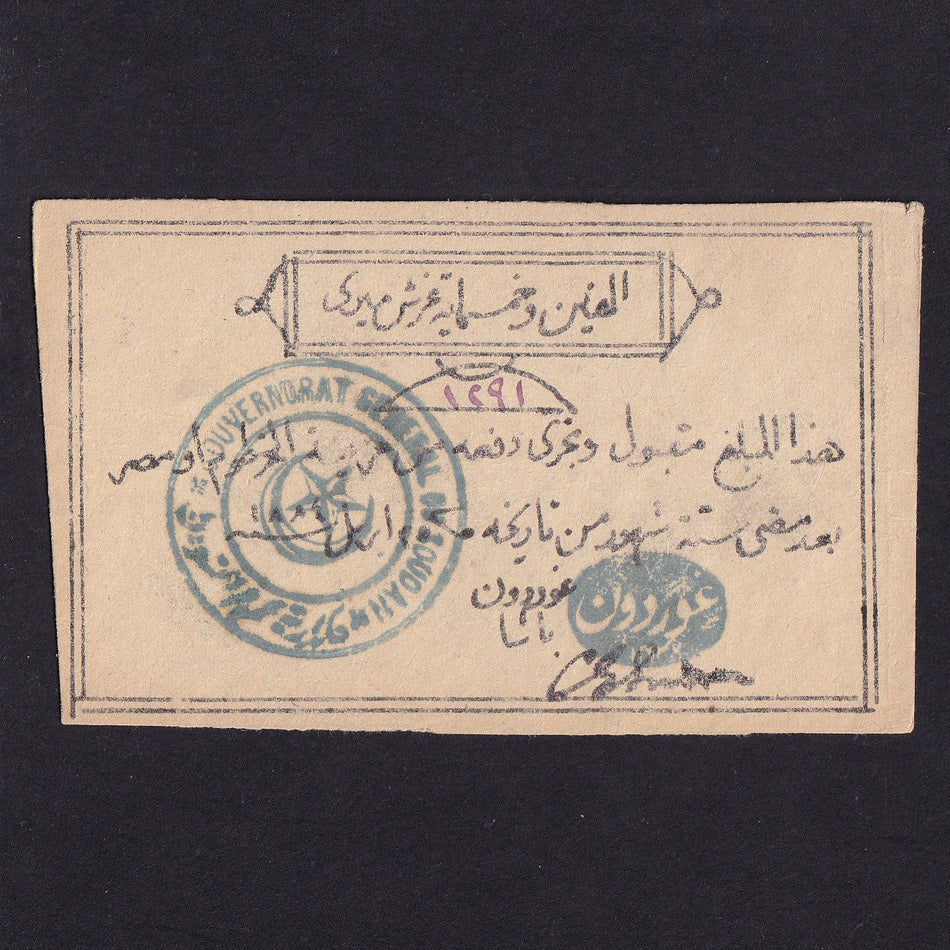 الفين وخمسماية غرش ميرى
١٢٩١
هذا المبلغ مقبول ويجرى دفعه من خزينة الخرطوم او مصر
بعد مضى ستة شهور من تاريخه ٢٥ ابريل سنة ١٨٨٤
غوردون
باشا
غوردون
GOUVERNORAT GENERAL DU SOUDAN